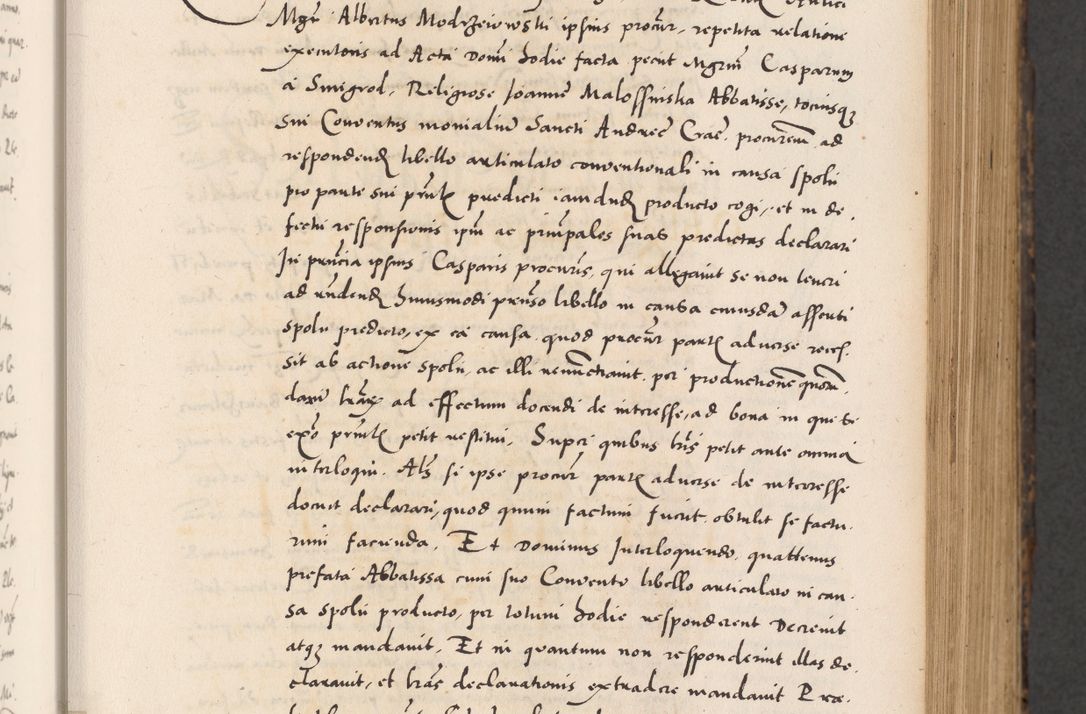 Mgr̃ Albertus Modrzeiowskii ipsius procur̃, repetita relatione
executoris ad Acta Domi hodie facta pecũt Mgrm̃ Casparum
á Smigrod, Religiose Joanne Malossinska Abbatisse, totiusq3
sui Conventus monialiũ Sancti Andreę Crac̃. procur̃em ad
respondend libello articulato conventionali in causa spolii
pro parte sui prñlis predicti iamdud producto cogi, et in de,
fectu responsionis ipm̃ ac principales suas predictas declarari
In pñtia ipsius Casparis procuris, qui allegavit se non teneri
ad rñdend huiusmodi pretenso libello in causa cuiusdã asserti
spolii predicto, ex eá causa quod procur̃ partis adverse reces.
sit ab actione spolii, ac illi renunctiavit per productione quorun,
darũ lrar̃ ad effectum docendi de interesse, ad bona in que se
ex̃o prñlis petit restitui, Super quibus lrĩs petit ante omnia
interloqui. Als̃ si ipse procur̃ partis adverse de interesse
docuit declarari, quod quum factum fuerit, obtulit se factu,
rum facienda. Et Dominus Interloquendo, quattenus
prefata Abbatissa cum suo Convento libello articulato in cau,
sa spolii producto, per totum hodie responderent Decrevit
atq3 mandavit. Et in quantum non responderint illas de,
claravit, et lrãs declarationis extradere mandavit Pre,